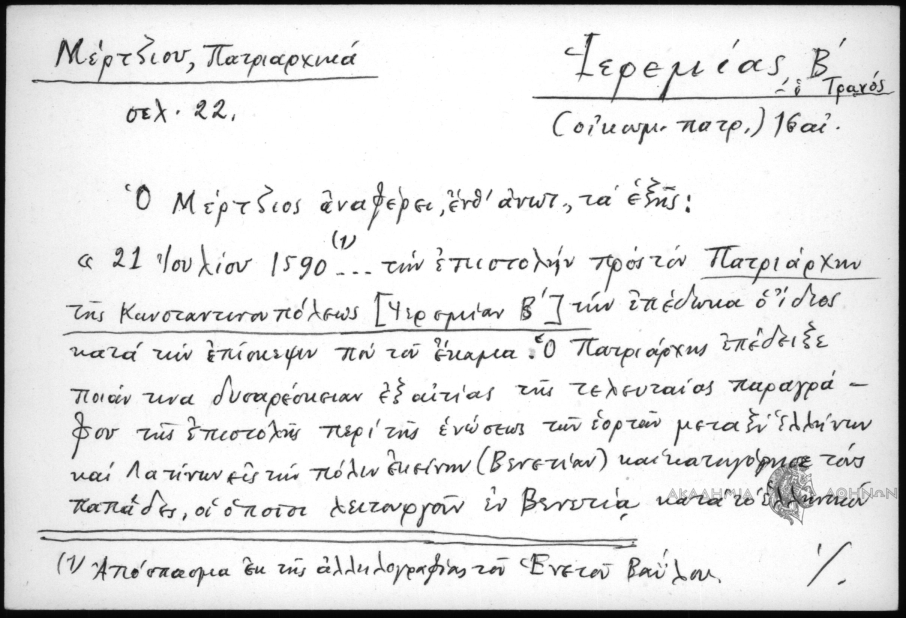 Μέρτζιου, Πατριαρχικά
σελ. 22.
Ἱερεμίας Β΄
ὁ Τρανός
(οἰκουμ. πατρ.) 16 αἰ.
Ὁ Μέρτζιος ἀναφέρει, ἔνθ' ἀνωτ., τὰ ἑξῆς:
« 21 Ἰουλίου 1590 (1) ... τὴν ἐπιστολὴν πρὸς τὸν Πατριάρχην
τῆς Κωνσταντινουπόλεως [Ἱερεμίαν Β΄] τὴν ἐπέδωκα ὁ ἴδιος
κατὰ τὴν ἐπίσκεψιν ποὺ τοῦ ἔκαμα. Ὁ Πατριάρχης ἐπέδειξε
ποιάν τινα δυσαρέσκειαν ἐξ αἰτίας τῆς τελευταίας παραγρά-
φου τῆς ἐπιστολῆς περὶ τῆς ἑνώσεως τῶν ἑορτῶν μεταξὺ Ἑλλήνων
καὶ Λατίνων εἰς τὴν πόλιν ἐκείνην (Βενετίαν) καὶ κατηγόρησε τοὺς
παπάδες, οἱ ὁποῖοι λειτουργοῦν ἐν Βενετίᾳ κατὰ τὸ ἑλληνικὸν
ΑΚΑΔΗΜΙΑ ΑΘΗΝΩΝ
(1) Ἀπόσπασμα ἐκ τῆς ἀλληλογραφίας τοῦ Ἐνετοῦ Βαΐλου.
./.